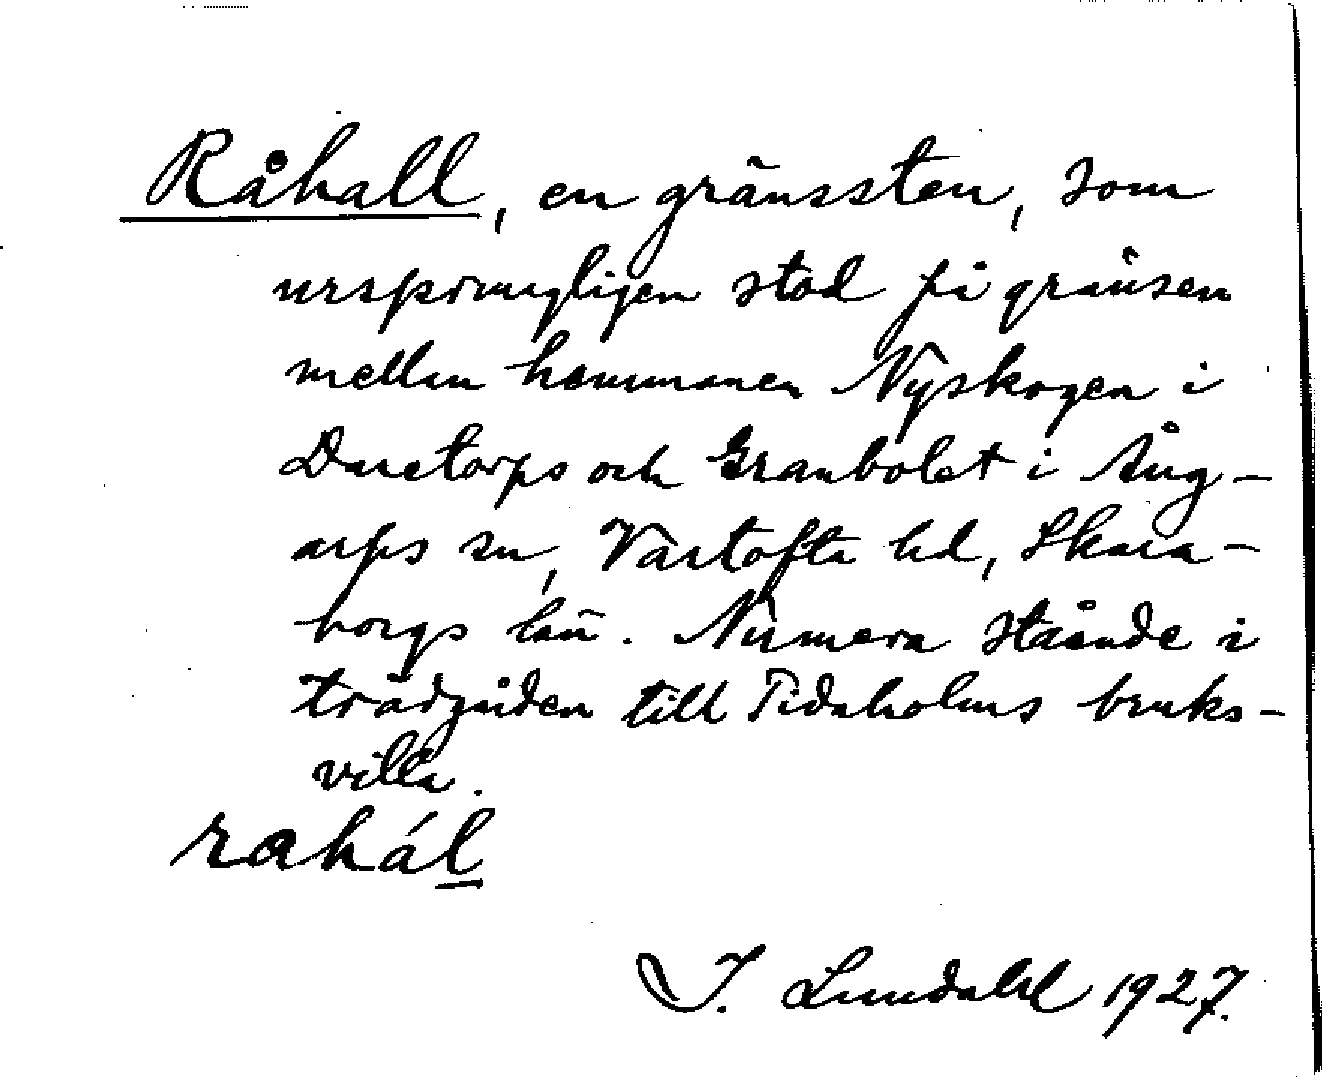 Råhall, en gränssten, som
ursprungligen stod på gränsen
mellan hemmanen Nyskogen i
Daretorps och Granbolet i Ång-
arps sn, Vartofta hd, Skara-
borgs län. Numera stående i
trädgården till Tidaholms bruks-
villa.
rahál
I. Lundahl 1927.